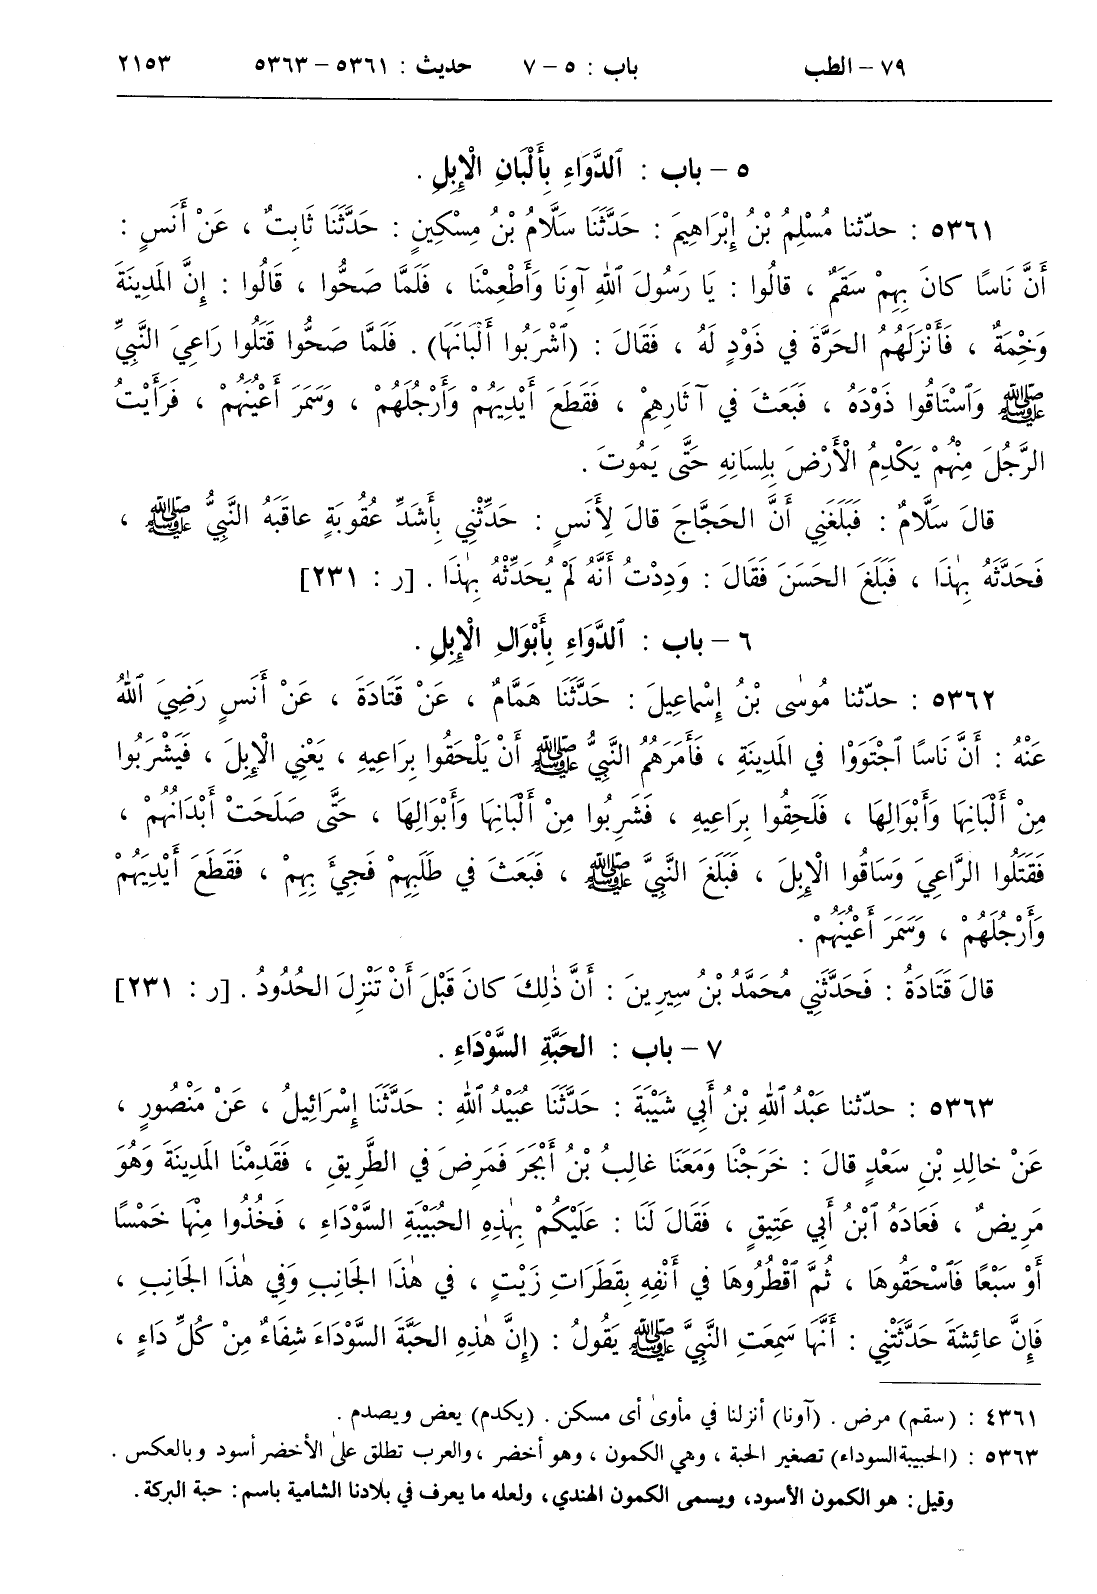 ٧٩ – الطب باب : ٥ – ٧ حديث : ٥٣٦١ – ٥٣٦٣ ٢١٥٣
٥ – باب : ٱلدَّوَاءِ بِأَلْبَانِ الْإِبِلِ .
٥٣٦١ : حدّثنا مُسْلِمُ بْنُ إِبْرَاهِيمَ : حَدَّثَنَا سَلَّامُ بْنُ مِسْكِينٍ : حَدَّثَنَا ثَابِتٌ ، عَنْ أَنَسٍ :
أَنَّ نَاسًا كانَ بِهِمْ سَقَمٌ ، قالُوا : يَا رَسُولَ ٱللهِ آوِنَا وَأَطْعِمْنَا ، فَلَمَّا صَحُّوا ، قَالُوا : إِنَّ المَدِينَةَ
وَخِمَةٌ ، فَأَنْزَلَهُمُ الحَرَّةَ في ذَوْدٍ لَهُ ، فَقَالَ : (ٱشْرَبُوا أَلْبَانَهَا) . فَلَمَّا صَحُّوا قَتَلُوا رَاعِيَ النَّبِيِّ
ﷺ وَٱسْتَاقُوا ذَوْدَهُ ، فَبَعَثَ في آثارِهِمْ ، فَقَطَعَ أَيْدِيَهُمْ وَأَرْجُلَهُمْ ، وَسَمَرَ أَعْيُنَهُمْ ، فَرَأَيْتُ
الرَّجُلَ مِنْهُمْ يَكْدِمُ الْأَرْضَ بِلِسَانِهِ حَتَّى يَمُوتَ .
قالَ سَلَّامٌ : فَبَلَغَنِي أَنَّ الحَجَّاجَ قالَ لِأَنَسٍ : حَدِّثْنِي بِأَشَدِّ عُقُوبَةٍ عاقَبَهُ النَّبِيُّ ﷺ ،
فَحَدَّثَهُ بِهٰذَا ، فَبَلَغَ الحَسَنَ فَقَالَ : وَدِدْتُ أَنَّهُ لَمْ يُحَدِّثْهُ بِهٰذَا . [ر : ٢٣١]
٦ – باب : ٱلدَّوَاءِ بِأَبْوَالِ الْإِبِلِ .
٥٣٦٢ : حدّثنا مُوسٰى بْنُ إِسْماعِيلَ : حَدَّثَنَا هَمَّامٌ ، عَنْ قَتَادَةَ ، عَنْ أَنَسٍ رَضِيَ ٱللهُ
عَنْهُ : أَنَّ نَاسًا ٱجْتَوَوْا في المَدِينَةِ ، فَأَمَرَهُمُ النَّبِيُّ ﷺ أَنْ يَلْحَقُوا بِرَاعِيهِ ، يَعْنِي الْإِبِلَ ، فَيَشْرَبُوا
مِنْ أَلْبَانِهَا وَأَبْوَالِهَا ، فَلَحِقُوا بِرَاعِيهِ ، فَشَرِبُوا مِنْ أَلْبَانِهَا وَأَبْوَالِهَا ، حَتَّى صَلَحَتْ أَبْدَانُهُمْ ،
فَقَتَلُوا الرَّاعِيَ وَسَاقُوا الْإِبِلَ ، فَبَلَغَ النَّبِيَّ ﷺ ، فَبَعَثَ في طَلَبِهِمْ فَجِيءَ بِهِمْ ، فَقَطَعَ أَيْدِيَهُمْ
وَأَرْجُلَهُمْ ، وَسَمَرَ أَعْيُنَهُمْ .
قالَ قَتَادَةُ : فَحَدَّثَنِي مُحَمَّدُ بْنُ سِيرِينَ : أَنَّ ذٰلِكَ كانَ قَبْلَ أَنْ تَنْزِلَ الحُدُودُ . [ر : ٢٣١]
٧ – باب : الحَبَّةِ السَّوْدَاءِ .
٥٣٦٣ : حدّثنا عَبْدُ ٱللهِ بْنُ أَبِي شَيْبَةَ : حَدَّثَنَا عُبَيْدُ ٱللهِ : حَدَّثَنَا إِسْرَائِيلُ ، عَنْ مَنْصُورٍ ،
عَنْ خالِدِ بْنِ سَعْدٍ قالَ : خَرَجْنَا وَمَعَنَا غالِبُ بْنُ أَبْجَرَ فَمَرِضَ في الطَّرِيقِ ، فَقَدِمْنَا المَدِينَةَ وَهُوَ
مَرِيضٌ ، فَعَادَهُ ٱبْنُ أَبِي عَتِيقٍ ، فَقَالَ لَنَا : عَلَيْكُمْ بِهٰذِهِ الحُبَيْبَةِ السَّوْدَاءِ ، فَخُذُوا مِنْهَا خَمْسًا
أَوْ سَبْعًا فَٱسْحَقُوهَا ، ثُمَّ ٱقْطُرُوهَا في أَنْفِهِ بِقَطَرَاتِ زَيْتٍ ، في هٰذَا الجَانِبِ وَفي هٰذَا الجَانِبِ ،
فَإِنَّ عائِشَةَ حَدَّثَتْنِي : أَنَّهَا سَمِعَتِ النَّبِيَّ ﷺ يَقُولُ : (إِنَّ هٰذِهِ الحَبَّةَ السَّوْدَاءَ شِفَاءٌ مِنْ كُلِّ دَاءٍ ،
٤٣٦١ : (سقم) مرض . (آونا) أنزلنا في مأوىٰ أى مسكن . (يكدم) يعض ويصدم .
٥٣٦٣ : (الحبيبة السوداء) تصغير الحبة ، وهي الكمون ، وهو أخضر ، والعرب تطلق علىٰ الأخضر أسود وبالعكس .
وقيل : هو الكمون الأسود، ويسمى الكمون الهندي، ولعله ما يعرف في بلادنا الشامية باسم : حبة البركة .